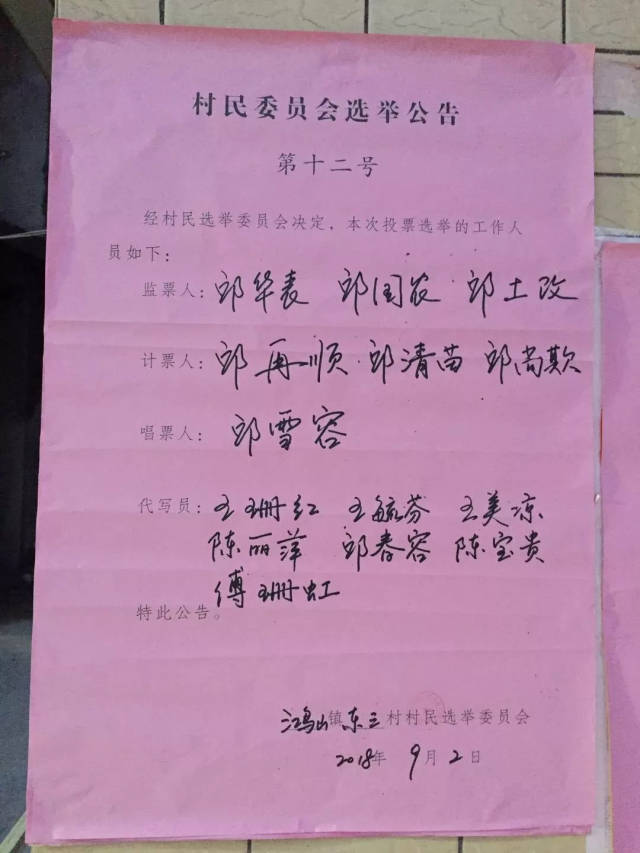 村民委员会选举公告
第十二号
经村民选举委员会决定，本次投票选举的工作人
员如下：
监票人：邱华表 邱国农 邱土改
计票人：邱再顺 邱清苗 邱尚欺
唱票人：邱雪容
代写员：王珊红 王毓芬 王美凉
陈丽萍 邱春容 陈宝贵
傅珊虹
特此公告。
鸿山镇东三村村民选举委员会
2018年9月2日